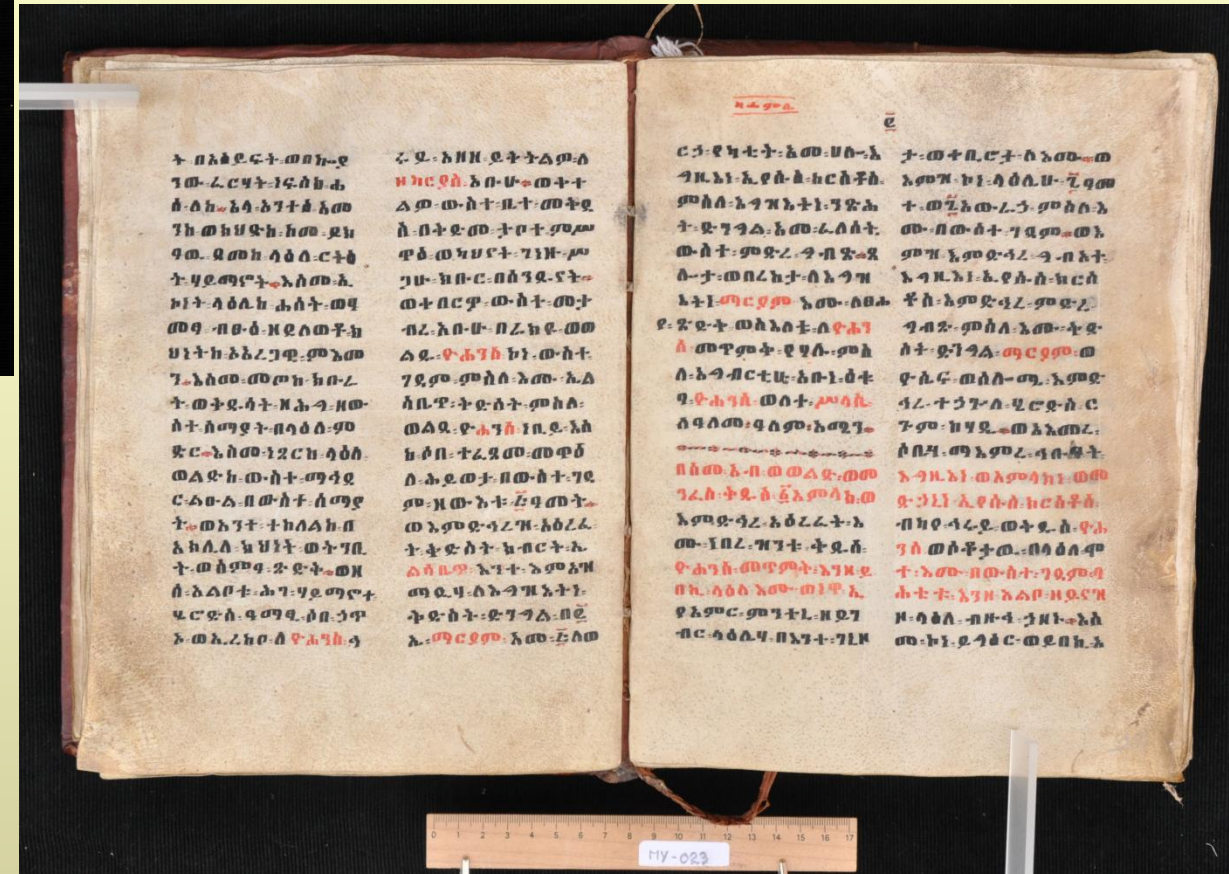 ት፡በእፅይፍት፡ወበኵይ
ንው፡ፈርሃት፡ነፍስከ፡ሐ
ስ፡ለከ።አላ፡አንተሰ፡እመ
ት፡ሃይማኖት።እስመ፡ኢ
ኮነት፡ላዕሌከ፡ሐሰት፡ወፃ
ን።እስመ፡መጦከ፡ክቡረ፡
ድር።እስመ፡ነገርከ፡ላዕለ፡
ወልድከ፡ውስተ፡ማኅደ
ር፡ልዑል፡በውስተ፡ሰማያ
ት።ወአንተ፡ተከለልከ፡በ
አክሊለ፡ክህነት፡ወትንቢ
ት፡ወስምዓ፡ጽድቅ።ወዘ
ሰ፡አልቦቱ፡ሕገ፡ሃይማኖተ፡
ሄሮድስ፡ዓማፂ፡ሶበ፡ኃጥ
አ፡ወኢረከቦ፡ለዮሐንስ፡ላ
ሩይ፡አዘዘ፡ይትቀልዎ፡ለ
ዘካርያስ፡አቡሁ።ወቀተ
ልዎ፡ውስተ፡ቤተ፡መቅደ
ስ፡በቅድመ፡ታቦተ፡ምሥ
ዋዕ፡ወካህናት፡ገነዙ፡ሥ
ጋሁ፡ክቡር፡በሰንዱናት።
ወቀበርዎ፡ውስተ፡መቃ
ብረ፡አቡሁ፡በራክዩ፡ወወ
ልዱ፡ዮሐንስ፡ኮነ፡ውስተ፡
ገዳም፡ምስለ፡እሙ፡ኤል
ሳቤጥ፡ቅድስት፡ምስለ፡
ወልዳ፡ዮሐንስ፡ነቢይ፡እስ
ከ፡ሶበ፡ተፈጸመ፡መዋዕ
ለ፡ሕይወታ፡በውስተ፡ገዳ
ም፡ዘውእቱ፡፭፡ዓመት።
ወእምድኅረዝ፡አዕረፈ
ት፡ቅድስት፡ክብርት፡ኤ
ልሳቤጥ፡እንተ፡እምአዝ
ማዲሃ፡ለእግዝእትነ፡
ቅድስት፡ድንግል፡በ፪
ኤ፡ማርያም፡አመ፡፭፡ለወ
ዘሐምሌ
፪
ርኃ፡የካቲት፡አመ፡ሀሎ፡እ
ግዚእነ፡ኢየሱስ፡ክርስቶስ፡
ምስለ፡እግዝእትነ፡ንጽሕ
ት፡ድንግል፡አመ፡ፈለሰት፡
ውስተ፡ምድረ፡ግብጽ።ጸ
ሎታ፡ወበረከታ፡ለእግዝ
እትነ፡ማርያም፡እሙ፡ለፀሐ
ይ፡ጽድቅ፡ወስእለቱ፡ለዮሐን
ስ፡መጥምቅ፡የሃሉ፡ምስ
ለ፡አግብርቲሁ፡አቡነ፡ዕቁ
ባ፡ዮሐንስ፡ወለተ፡ሥላሴ፡
ለዓለመ፡ዓለም፡አሜን።
በስመ፡አብ፡ወወልድ፡ወመ
ንፈስ፡ቅዱስ፡፩አምላክ፡ወ
እምድኅረ፡አዕረፈት፡እ
ሙ፡ነበረ፡ዝንቱ፡ቅዱስ፡
ዮሐንስ፡መጥምቅ፡እንዘ፡ይ
በኪ፡ላዕለ፡እሙ፡ወነዋ፡ኢ
የአምር፡ምንተኒ፡ዘይገ
ብር፡ላዕሌሃ፡በእንተ፡ገኒዞ
ታ፡ወቀቢሮታ፡ለእሙ።ወ
እምዝ፡ኮነ፡ላዕሌሁ፡፯ዓመ
ት፡ወ፮አውራኃ፡ምስለ፡እ
ሙ፡በውስተ፡ገዳም።ወእ
ምዝ፡እምድኅረ፡ግብአቱ፡
እግዚእነ፡ኢየሱስ፡ክርስ
ቶስ፡እምድኅረ፡ምድረ፡
ግብጽ፡ምስለ፡እሙ፡ቅድ
ስት፡ድንግል፡ማርያም፡ወ
ዮሴፍ፡ወሰሎሜ፡እምድ
ኅረ፡ተኃጕለ፡ሄሮድስ፡ር
ጉም፡ከሃዲ።ወአእመረ፡
እግዚእነ፡ወአምላክነ፡ወመ
ድኃኒነ፡ኢየሱስ፡ክርስቶስ፡
ብካየ፡ኅሩይ፡ወቅዱስ፡ዮሐ
ንስ፡ወሰቆቃወ፡በላዕለ፡ሞ
ተ፡እሙ፡በውስተ፡ገዳም፡ባ
ሕቲቱ፡እንዘ፡አልቦ፡ዘይናዝ
ዞ፡ላዕለ፡ብዙኅ፡ኃዘኑ።እስ
መ፡ኮነ፡ይግዕር፡ወይበኪ፡አ
0 1 2 3 4 5 6 7 8 9 10 11 12 13 14 15 16 17
MY-023